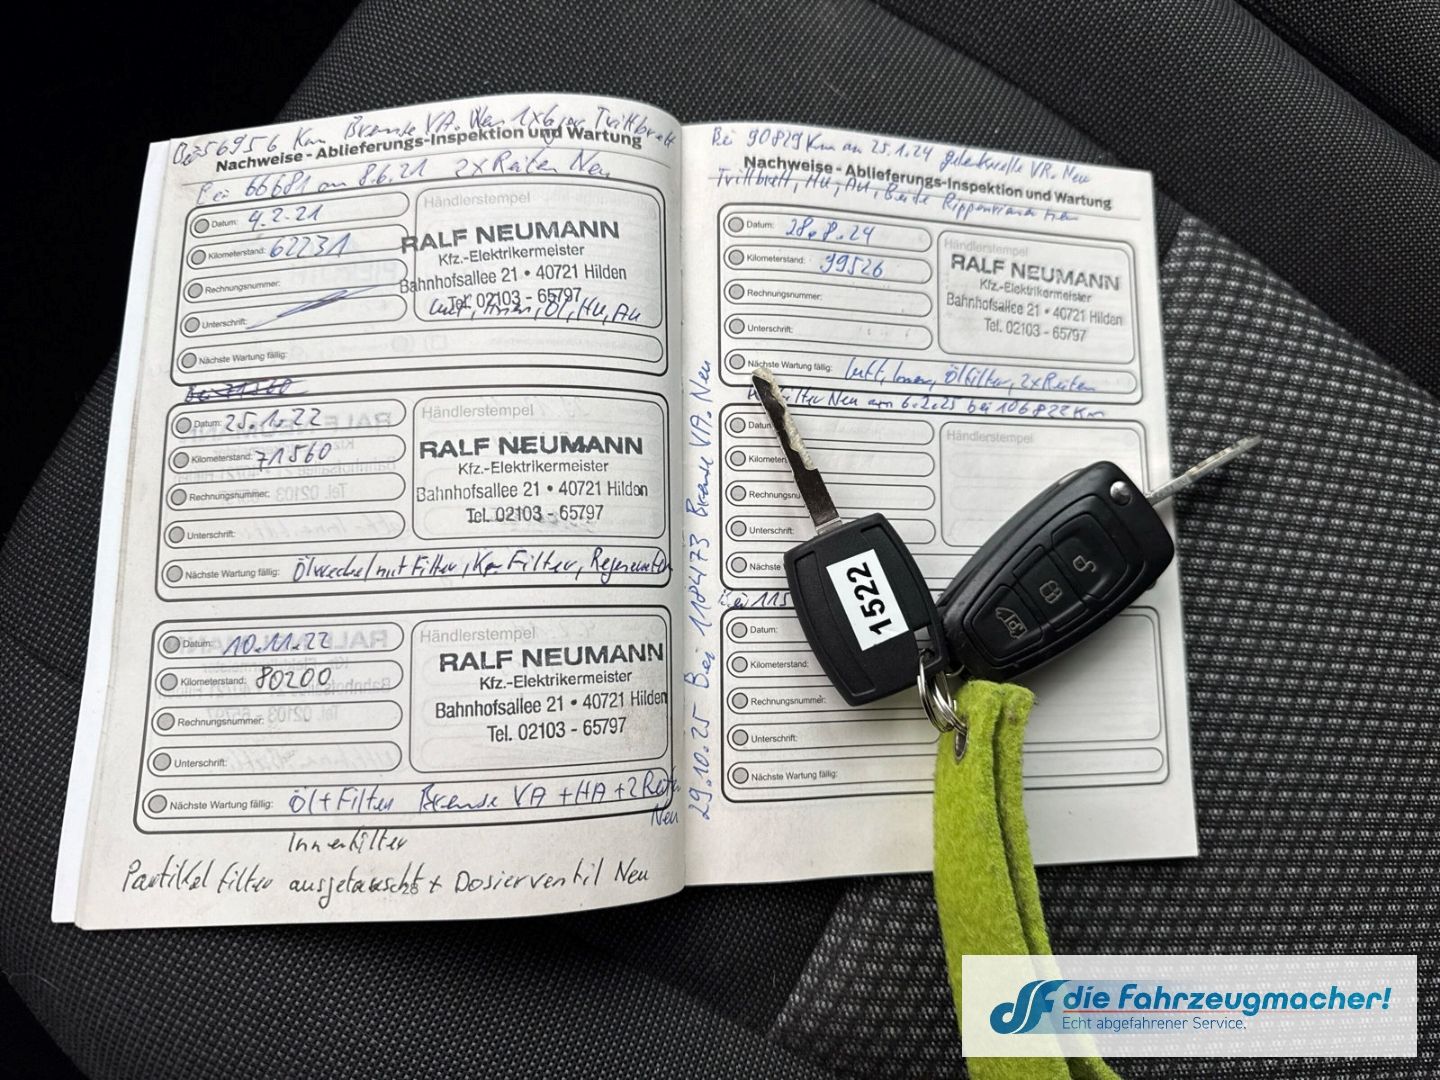 Bei 56956 Km Bremse VA. Neu Trittbrett
Nachweise - Ablieferungs-Inspektion und Wartung
Bei 66681 am 8.6.21 2x Reifen Neu
Datum: 9.2.21
Kilometerstand: 62231
Rechnungsnummer:
Unterschrift:
Nächste Wartung fällig:
Händlerstempel
RALF NEUMANN
Kfz.-Elektrikermeister
Bahnhofsallee 21 • 40721 Hilden
Tel. 02103 - 65797
Luft, Innen, Öl, HU, AU
Bei 71560
Datum: 25.1.22
Kilometerstand: 71560
Rechnungsnummer:
Unterschrift:
Nächste Wartung fällig: Ölwechsel mit Filter,
Händlerstempel
RALF NEUMANN
Kfz.-Elektrikermeister
Bahnhofsallee 21 • 40721 Hilden
Tel. 02103 - 65797
Datum: 10.11.22
Kilometerstand: 80200
Rechnungsnummer:
Unterschrift:
Nächste Wartung fällig: Öl + Filter Bremse VA + HA + 2 Reifen
Neu
Händlerstempel
RALF NEUMANN
Kfz.-Elektrikermeister
Bahnhofsallee 21 • 40721 Hilden
Tel. 02103 - 65797
Innenfilter
Partikelfilter ausgetauscht + Dosierventil Neu
28
Bei 90829 Km am 25.1.24 Gelenkwelle VR. Neu
Nachweise - Ablieferungs-Inspektion und Wartung
Trittbrett, HU, AU, Beide Rippenriemen
Datum: 28.8.24
Kilometerstand: 99526
Rechnungsnummer:
Unterschrift:
Nächste Wartung fällig: Luft, Innen, Ölfilter, 2x Reifen
Händlerstempel
RALF NEUMANN
Kfz.-Elektrikermeister
Bahnhofsallee 21 • 40721 Hilden
Tel. 02103 - 65797
Filter Neu am 6.2.25 bei 106822 Km
Rechnungsnu
Unterschrift:
Nächste W
Händlerstempel
Bei 115
Datum:
Kilometerstand:
Rechnungsnummer:
Unterschrift:
Nächste Wartung fällig:
29.10.25 Bei 118473 Bremse VA. Neu
1522
die Fahrzeugmacher!
Echt abgefahrener Service.